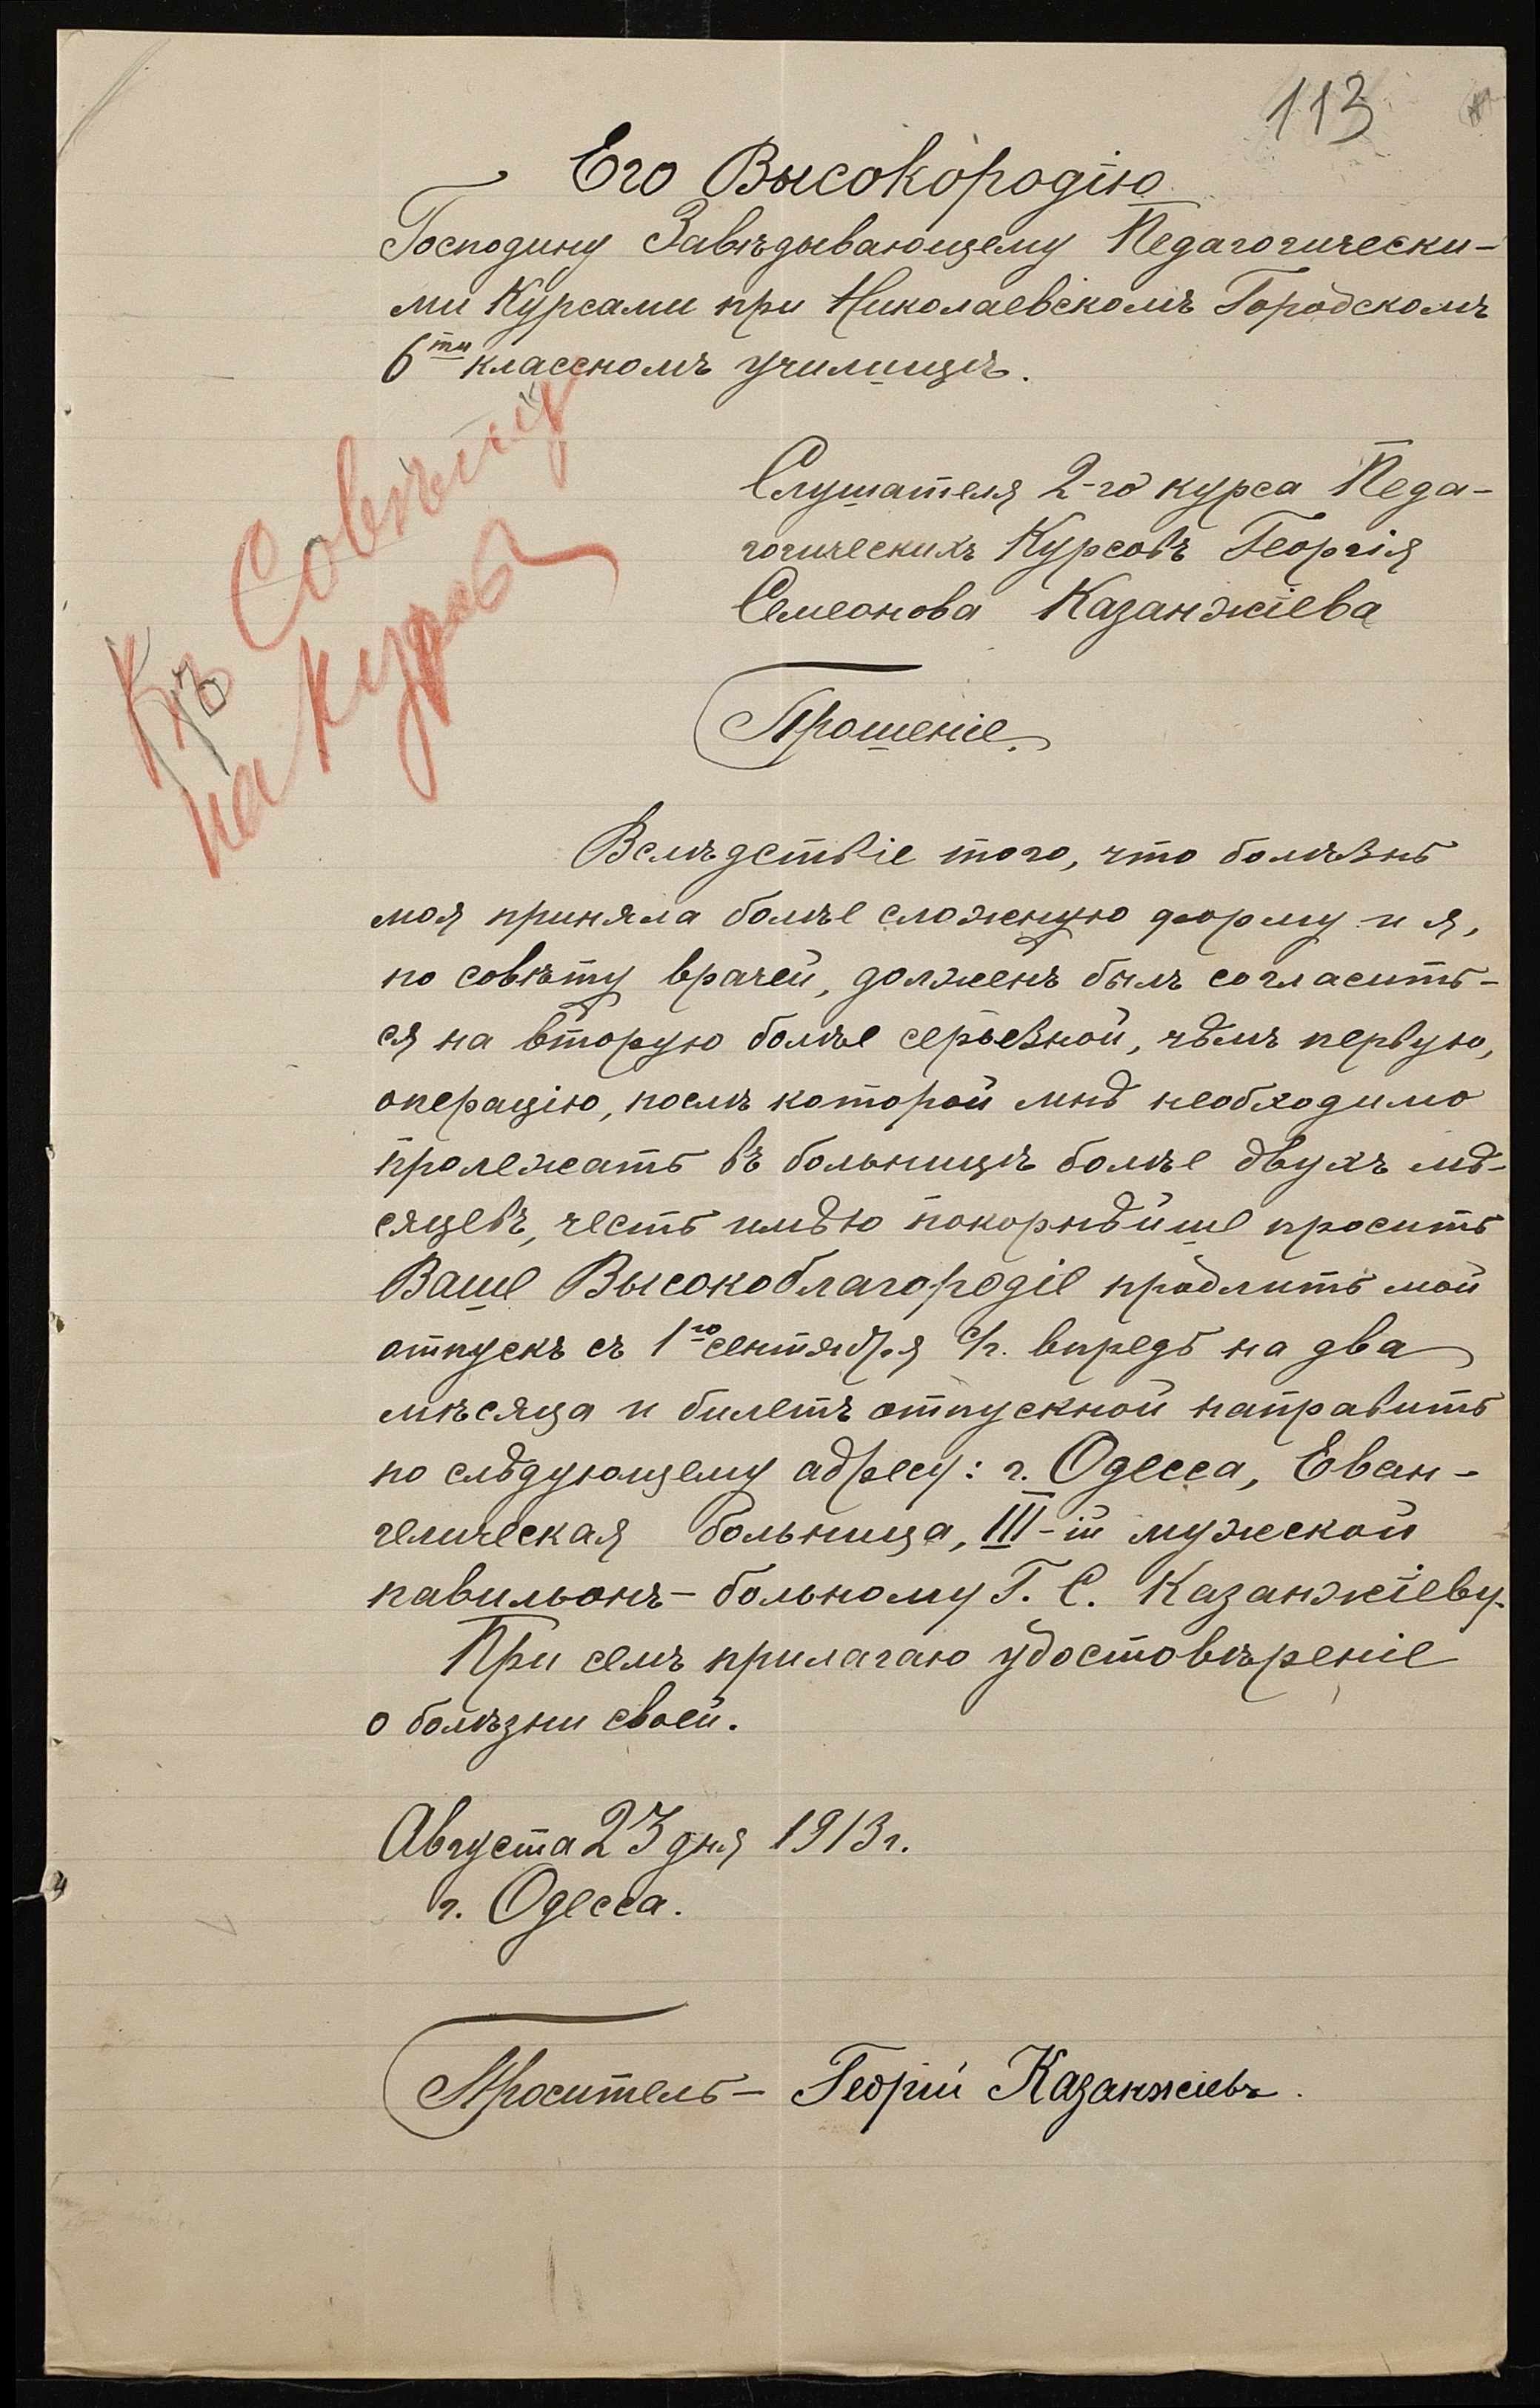 113
Его Высокородію
Господину Завѣдывающему Педагогически-
ми Курсами при Николаевскомъ Городскомъ
6ти классномъ училищѣ.
Къ Совѣту
на курсов
Слушателя 2-го курса Педа-
гогическихъ Курсовъ Георгія
Семеонова Казанжіева
Прошеніе.
Вслѣдствіе того, что болѣзнь
моя приняла болѣе сложную форму и я,
по совѣту врачей, долженъ былъ согласить-
ся на вторую болѣе серьезной, чѣмъ первую,
операцію, послѣ которой мнѣ необходимо
пролежать въ больницѣ болѣе двухъ мѣ-
сяцевъ, честь имѣю покорнѣйше просить
Ваше Высокоблагородіе продлить мой
отпускъ съ 1го сентября с/г. впредь на два
мѣсяца и билетъ отпускной направить
по слѣдующему адресу: г. Одесса, Еван-
гелическая больница, III-ій мужской
павильонъ - больному Г. С. Казанжіеву.
При семъ прилагаю удостовѣреніе
о болѣзни своей.
Августа 23 дня 1913 г.
г. Одесса.
Проситель - Георгій Казанжіевъ.